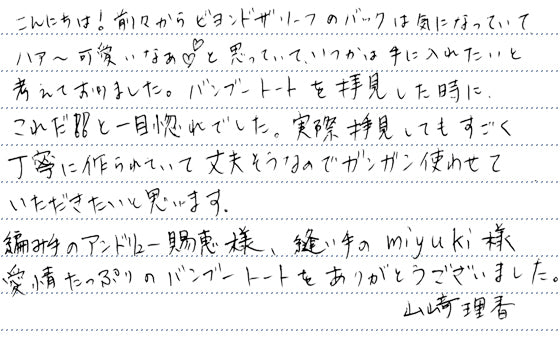 こんにちは！前々からビヨンドザリーフのバックは気になっていて
ハァ〜可愛いなぁ♡♡と思っていて、いつかは手に入れたいと
考えておりました。バンブートートを拝見した時に、
これだ!!と一目惚れでした。実際拝見してもすごく
丁寧に作られていて丈夫そうなのでガンガン使わせて
いただきたいと思います。
編み手のアンドリュー賜恵様、縫い手のmiyuki様
愛情たっぷりのバンブートートをありがとうございました。
山崎理香